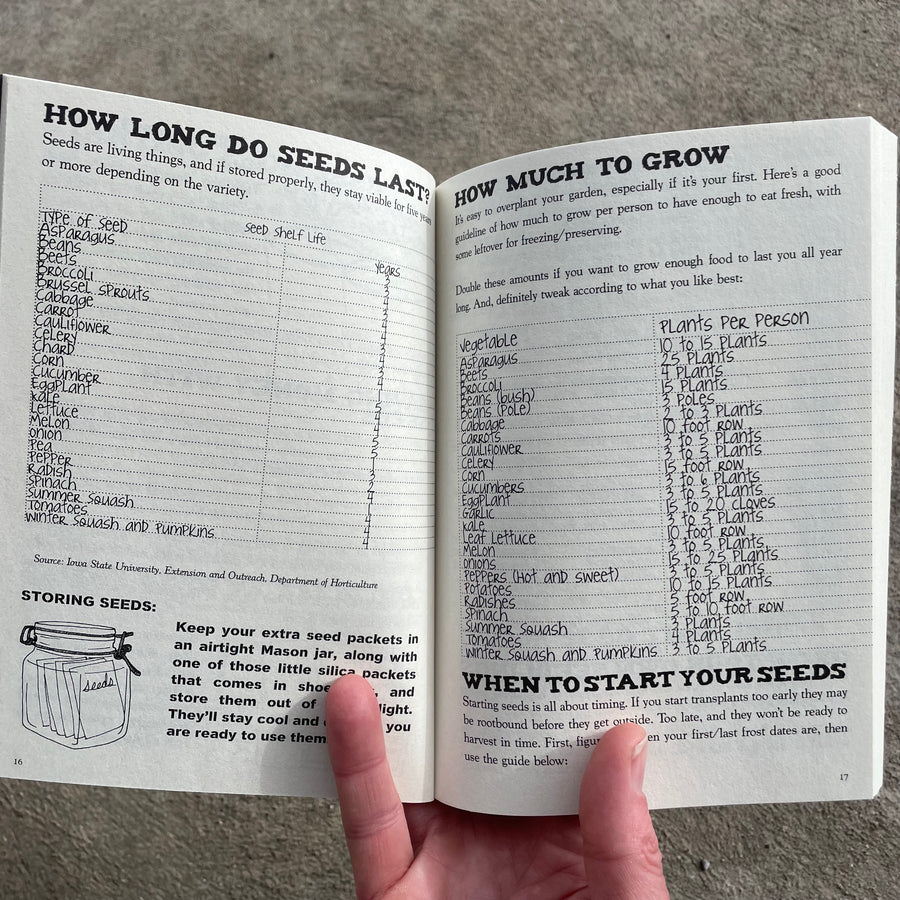 HOW LONG DO SEEDS LAST?
Seeds are living things, and if stored properly, they stay viable for five years
or more depending on the variety.
Type of Seed Seed Shelf Life
Years
Asparagus
Beans
Beets
Broccoli
Brussel Sprouts
Cabbage
Carrot
Cauliflower
Celery
Chard
Corn
Cucumber
Eggplant
Kale
Lettuce
Melon
Onion
Pea
Pepper
Radish
Spinach
Summer Squash
Tomatoes
Winter Squash and Pumpkins
Source: Iowa State University, Extension and Outreach, Department of Horticulture
STORING SEEDS:
Keep your extra seed packets in
an airtight Mason jar, along with
one of those little silica packets
that comes in and
store them out of
They'll stay cool and you
are ready to use them
seeds
16
HOW MUCH TO GROW
It's easy to overplant your garden, especially if it's your first. Here's a good
guideline of how much to grow per person to have enough to eat fresh, with
some leftover for freezing/preserving.
Double these amounts if you want to grow enough food to last you all year
long. And, definitely tweak according to what you like best:
Vegetable Plants Per Person
Asparagus 10 to 15 Plants
Beets 25 Plants
Broccoli 4 Plants
Beans (bush) 15 Plants
Beans (Pole) 3 Poles
Cabbage 2 to 3 Plants
Carrots 10 foot row
Cauliflower 3 to 5 Plants
Celery 3 to 5 Plants
Corn 15 foot row
Cucumbers 3 to 6 Plants
Eggplant 3 to 5 Plants
Garlic 15 to 20 cloves
Kale 3 to 5 Plants
Leaf Lettuce 10 foot row
Melon 3 to 5 Plants
Onions 15 to 25 Plants
Peppers (Hot and Sweet) 3 to 5 Plants
Potatoes 10 to 15 Plants
Radishes 5 foot row
Spinach 5 to 10 foot row
Summer Squash 3 Plants
Tomatoes 4 Plants
Winter Squash and Pumpkins 3 to 5 Plants
WHEN TO START YOUR SEEDS
Starting seeds is all about timing. If you start transplants too early they may
be rootbound before they get outside. Too late, and they won't be ready to
harvest in time. First, your first/last frost dates are, then
use the guide below:
17